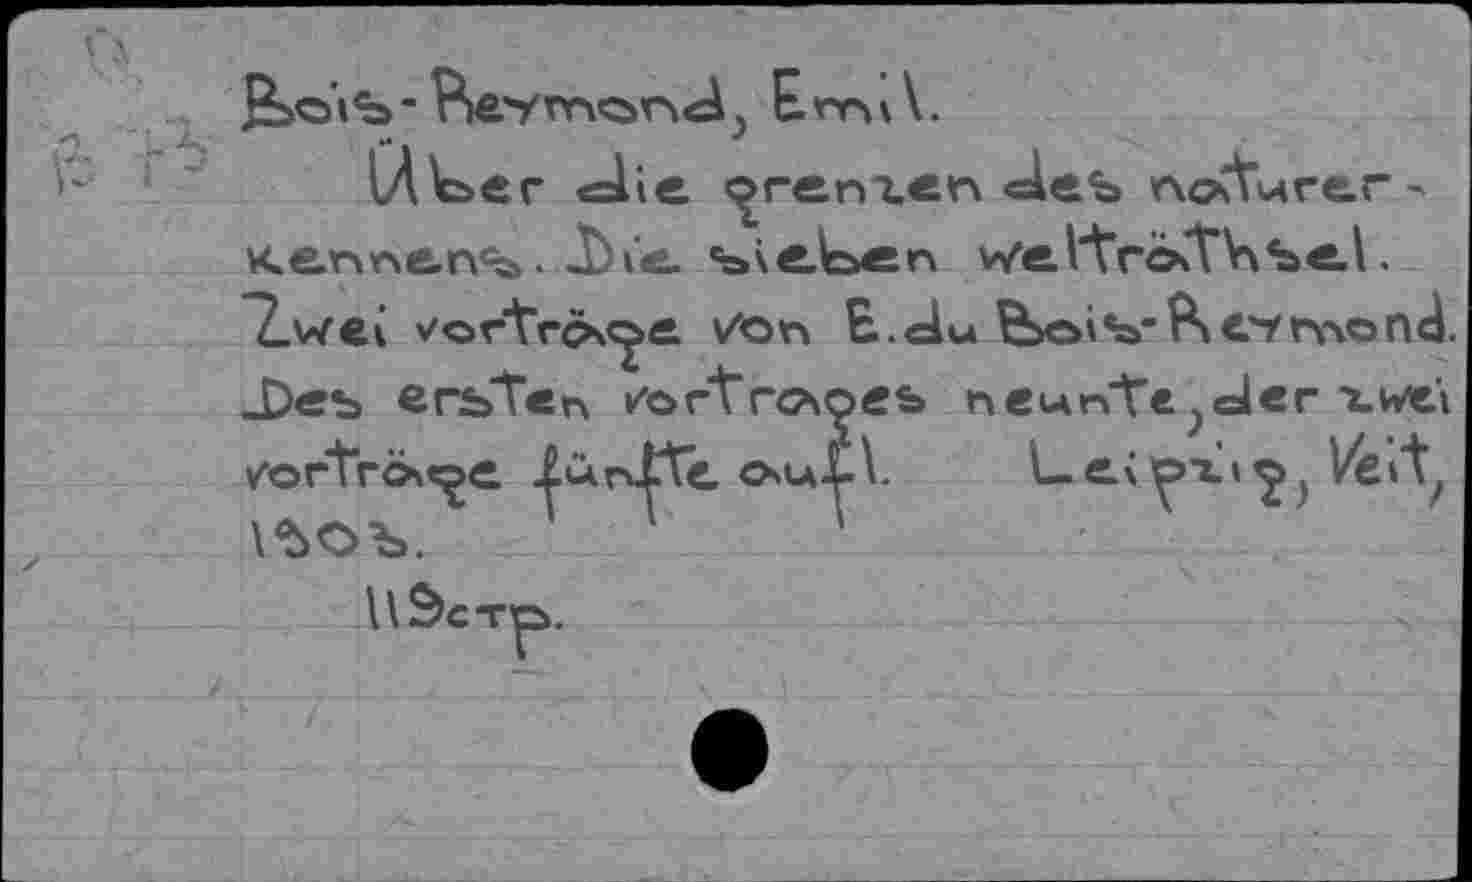 Bois-Reymond, Emil.
Über die grenzen des naturer-
kennens. Die sieben welträthsel.
Zwei vorträge von E. du Bois-Reymond.
Des ersten vortrages neunte, der zwei
vorträge fünfte aufl. Leipzig, Veit,
1903.
119стр.